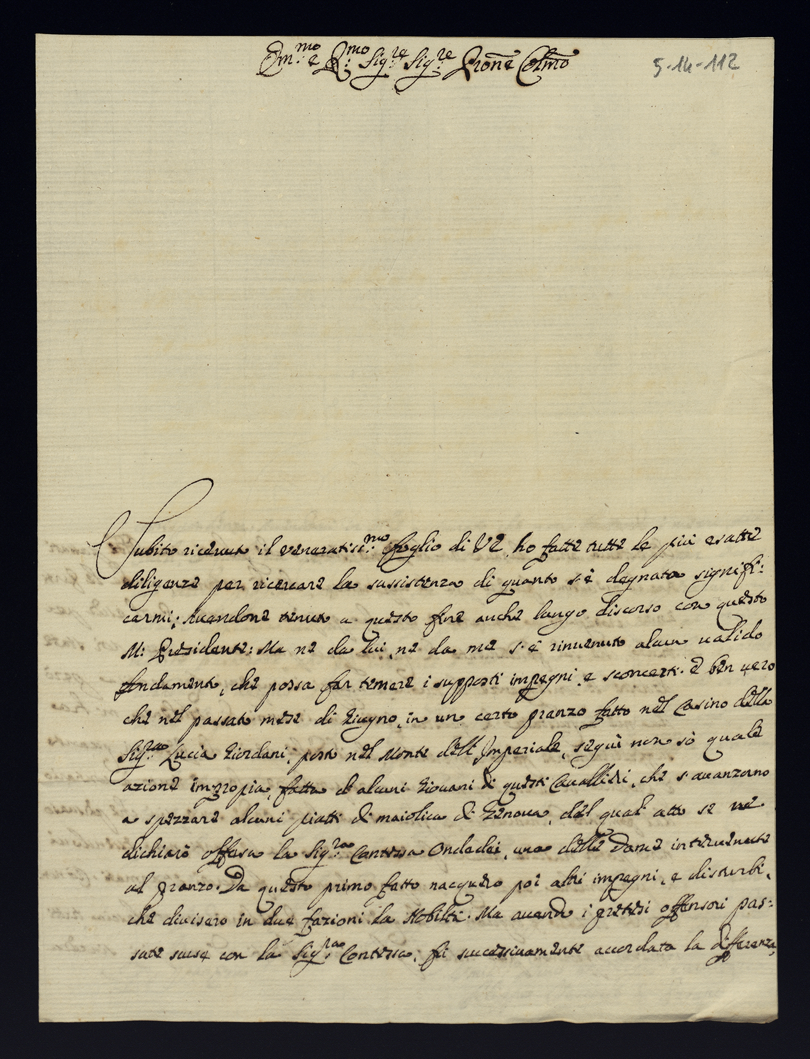 Em:mo e R:mo Sig:re Sig:re Pron͞e Col͞mo
5-14-112
Subito riceuuto il veneratiss:mo foglio di VE, ho fatte tutte le più esatte
diligenze per ricercare la sussistenza di quanto s'è degnata signifi:
carmi; Auendone tenuto a questo fine anche lungo discorso con questo
M: Presidente: Ma ne da lui, ne da me s'è rinuenuto alcun ualido
fondamento, che possa far temere i supposti impegni, e sconcerti. è ben uero
che nel passato mese di Giugno, in un certo pranzo fatto nel Casino della
Sig:ra Lucia Giordani, posto nel Monte dell'Imperiale, seguì non sò quale
azione impropia, fatta da alcuni Giouani di questi Cauallieri, che s'auanzorno
a spezzare alcuni piatti di maiolica di Genoua, del qual atto se ne
dichiarò offesa la Sig:ra Contessa Ondedei, una delle Dame interuenute
al pranzo. Da questo primo fatto nacquero poi altri impegni, e disturbi,
che diuisero in due fazioni la Nobiltà. Ma auendo i pretesi offensori pas:
sate scuse con la Sig:ra Contessa, fù successiuamente accordata la differenza,